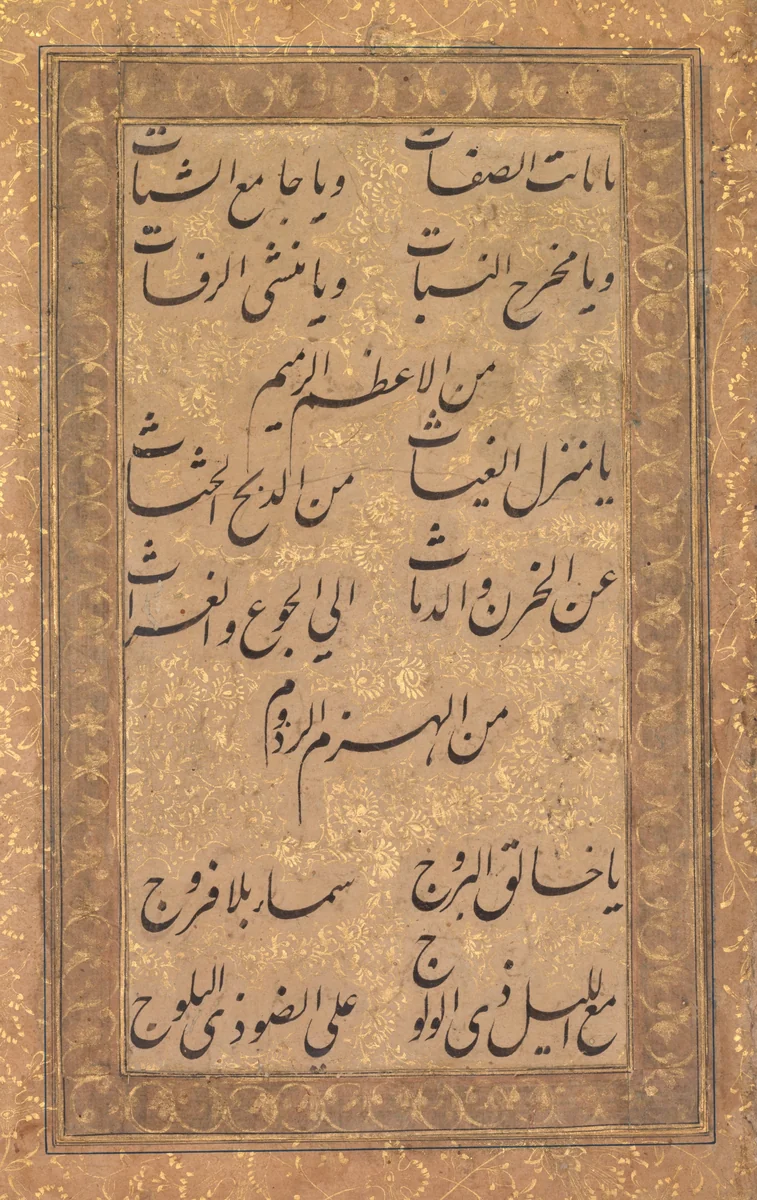 یا ثابت الصفات ویا جامع الشتات
ویا مخرج النبات ویا منشی الرفات
من الاعظم الرمیم
یا منزل الغیاث من الدبح الحثاث
عن الخرن والدماث الی الجوع والغراث
من الهزم الرذوم
یا خالق البروج سماء بلا فروج
مع اللیل ذی الولوج علی الضو ذی البلوج